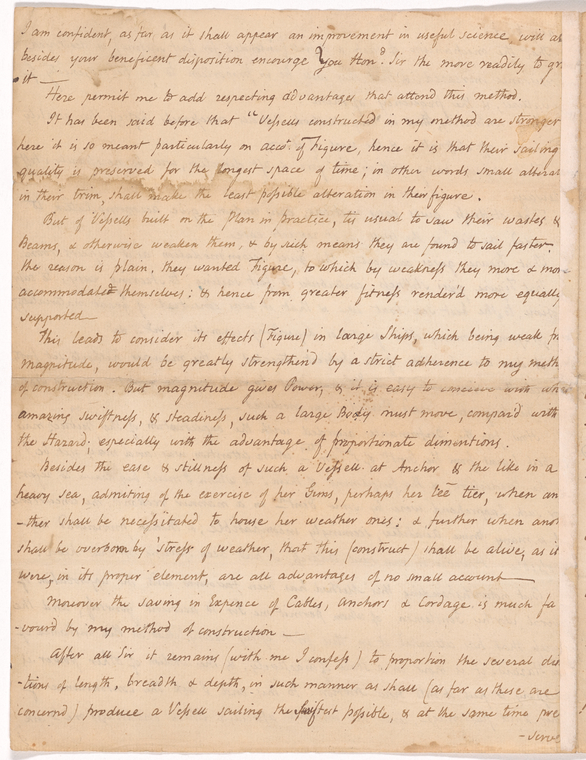 I am confident, as far as it shall appear an improvement in useful science will as
besides your beneficent disposition encourge You Hond. Sir the more readily to gr
it —
Here permit me to add respecting advantages that attend this method.
It has been said before that "Vessells constructed in my method are stronger
here it is so meant particularly on acco. of Figure, hence it is that their sailing
quality is preserved for the longest space of time; in other words small alterat
in their trim, shall make the least possible alteration in their figure.
But of Vessells built on the Plan in practice, tis usual to saw their wastes &
Beams, & otherwise weaken them, & by such means they are found to sail faster.
the reason is plain. they wanted Figure, to which by weakness they more & mor
accommodated themselves: & hence from greater fitness render'd more equally
supported —
This leads to consider its effects (Figure) in large Ships, which being weak fr
magnitude, would be greatly strengthen'd by a strict adherence to my meth
of construction. But magnitude gives Power, & it is easy to conceive with wh
amazing swiftness, & steadiness, such a large Body must move, compar'd with
the Hazard; especially with the advantage of proportionate dimentions.
Besides the ease & stillness of such a Vessell at Anchor & the like in a
heavy sea, admiting of the exercise of her Guns, perhaps her lee tier, when an
-ther shall be necessitated to house her weather ones: & further when anot
shall be overborn by stress of weather, that this (construct) shall be alive, as it
were, in its proper element, are all advantages of no small account —
Moreover the saving in Expence of Cables, Anchors & Cordage is much fa
-vourd by my method of construction —
After all Sir it remains (with me I confess) to proportion the several di
-tions of length, breadth & depth, in such manner as shall (as far as these are
concernd) produce a Vessell sailing the swiftest possible, & at the same time pre
-serve